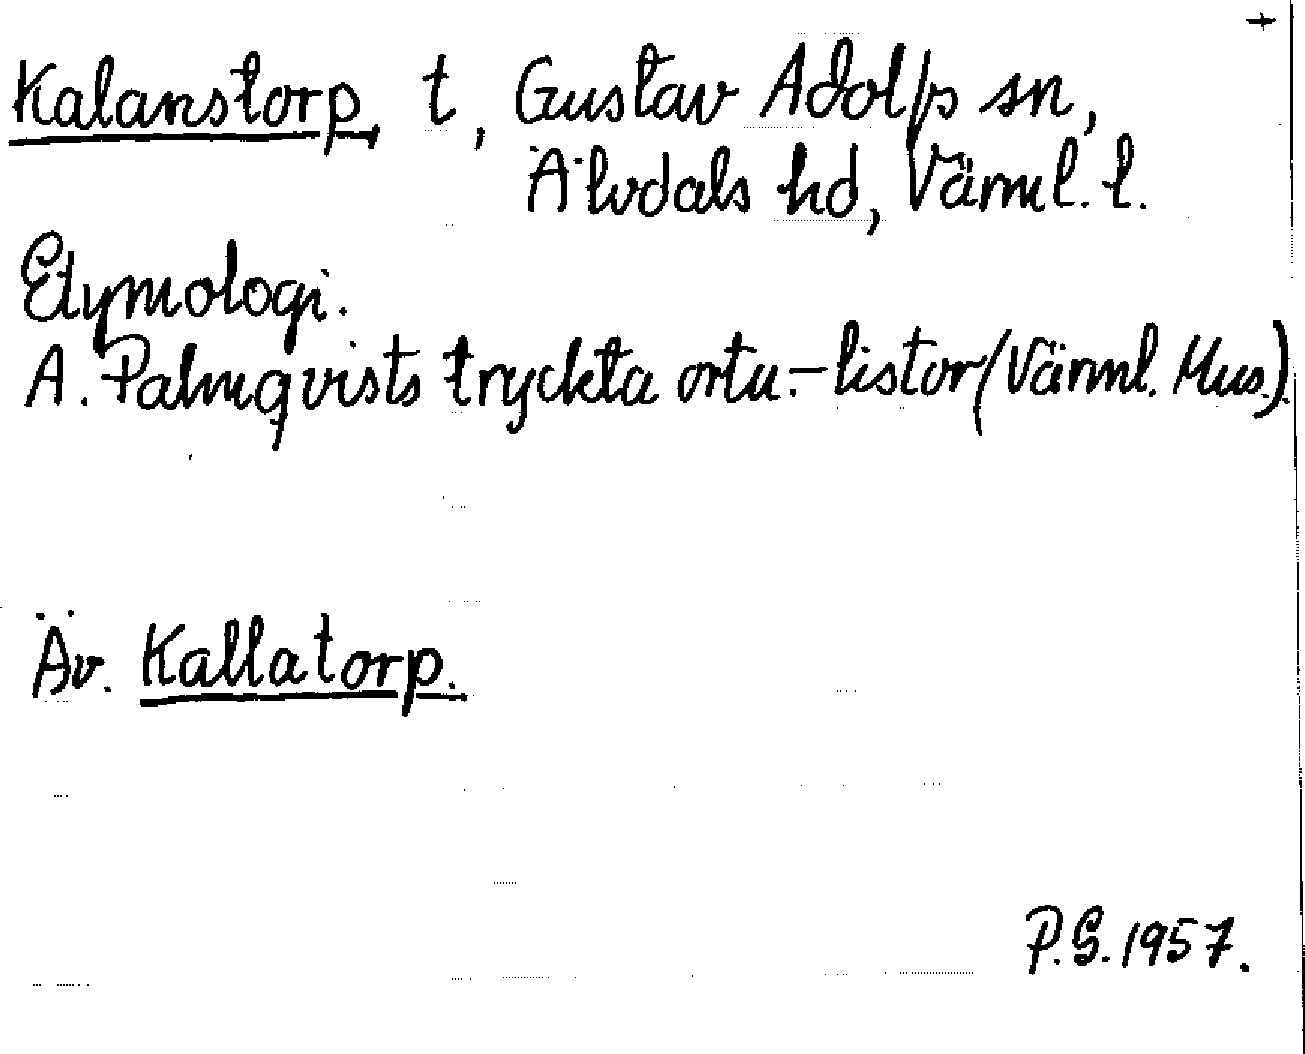 +
Kalanstorp, t, Gustav Adolfs sn,
Älvdals hd, Värml. l.
Etymologi.
A. Palmqvists tryckta ortn.-listor (Värml. Mus.).
Äv. Kallatorp.
P.G. 1957.